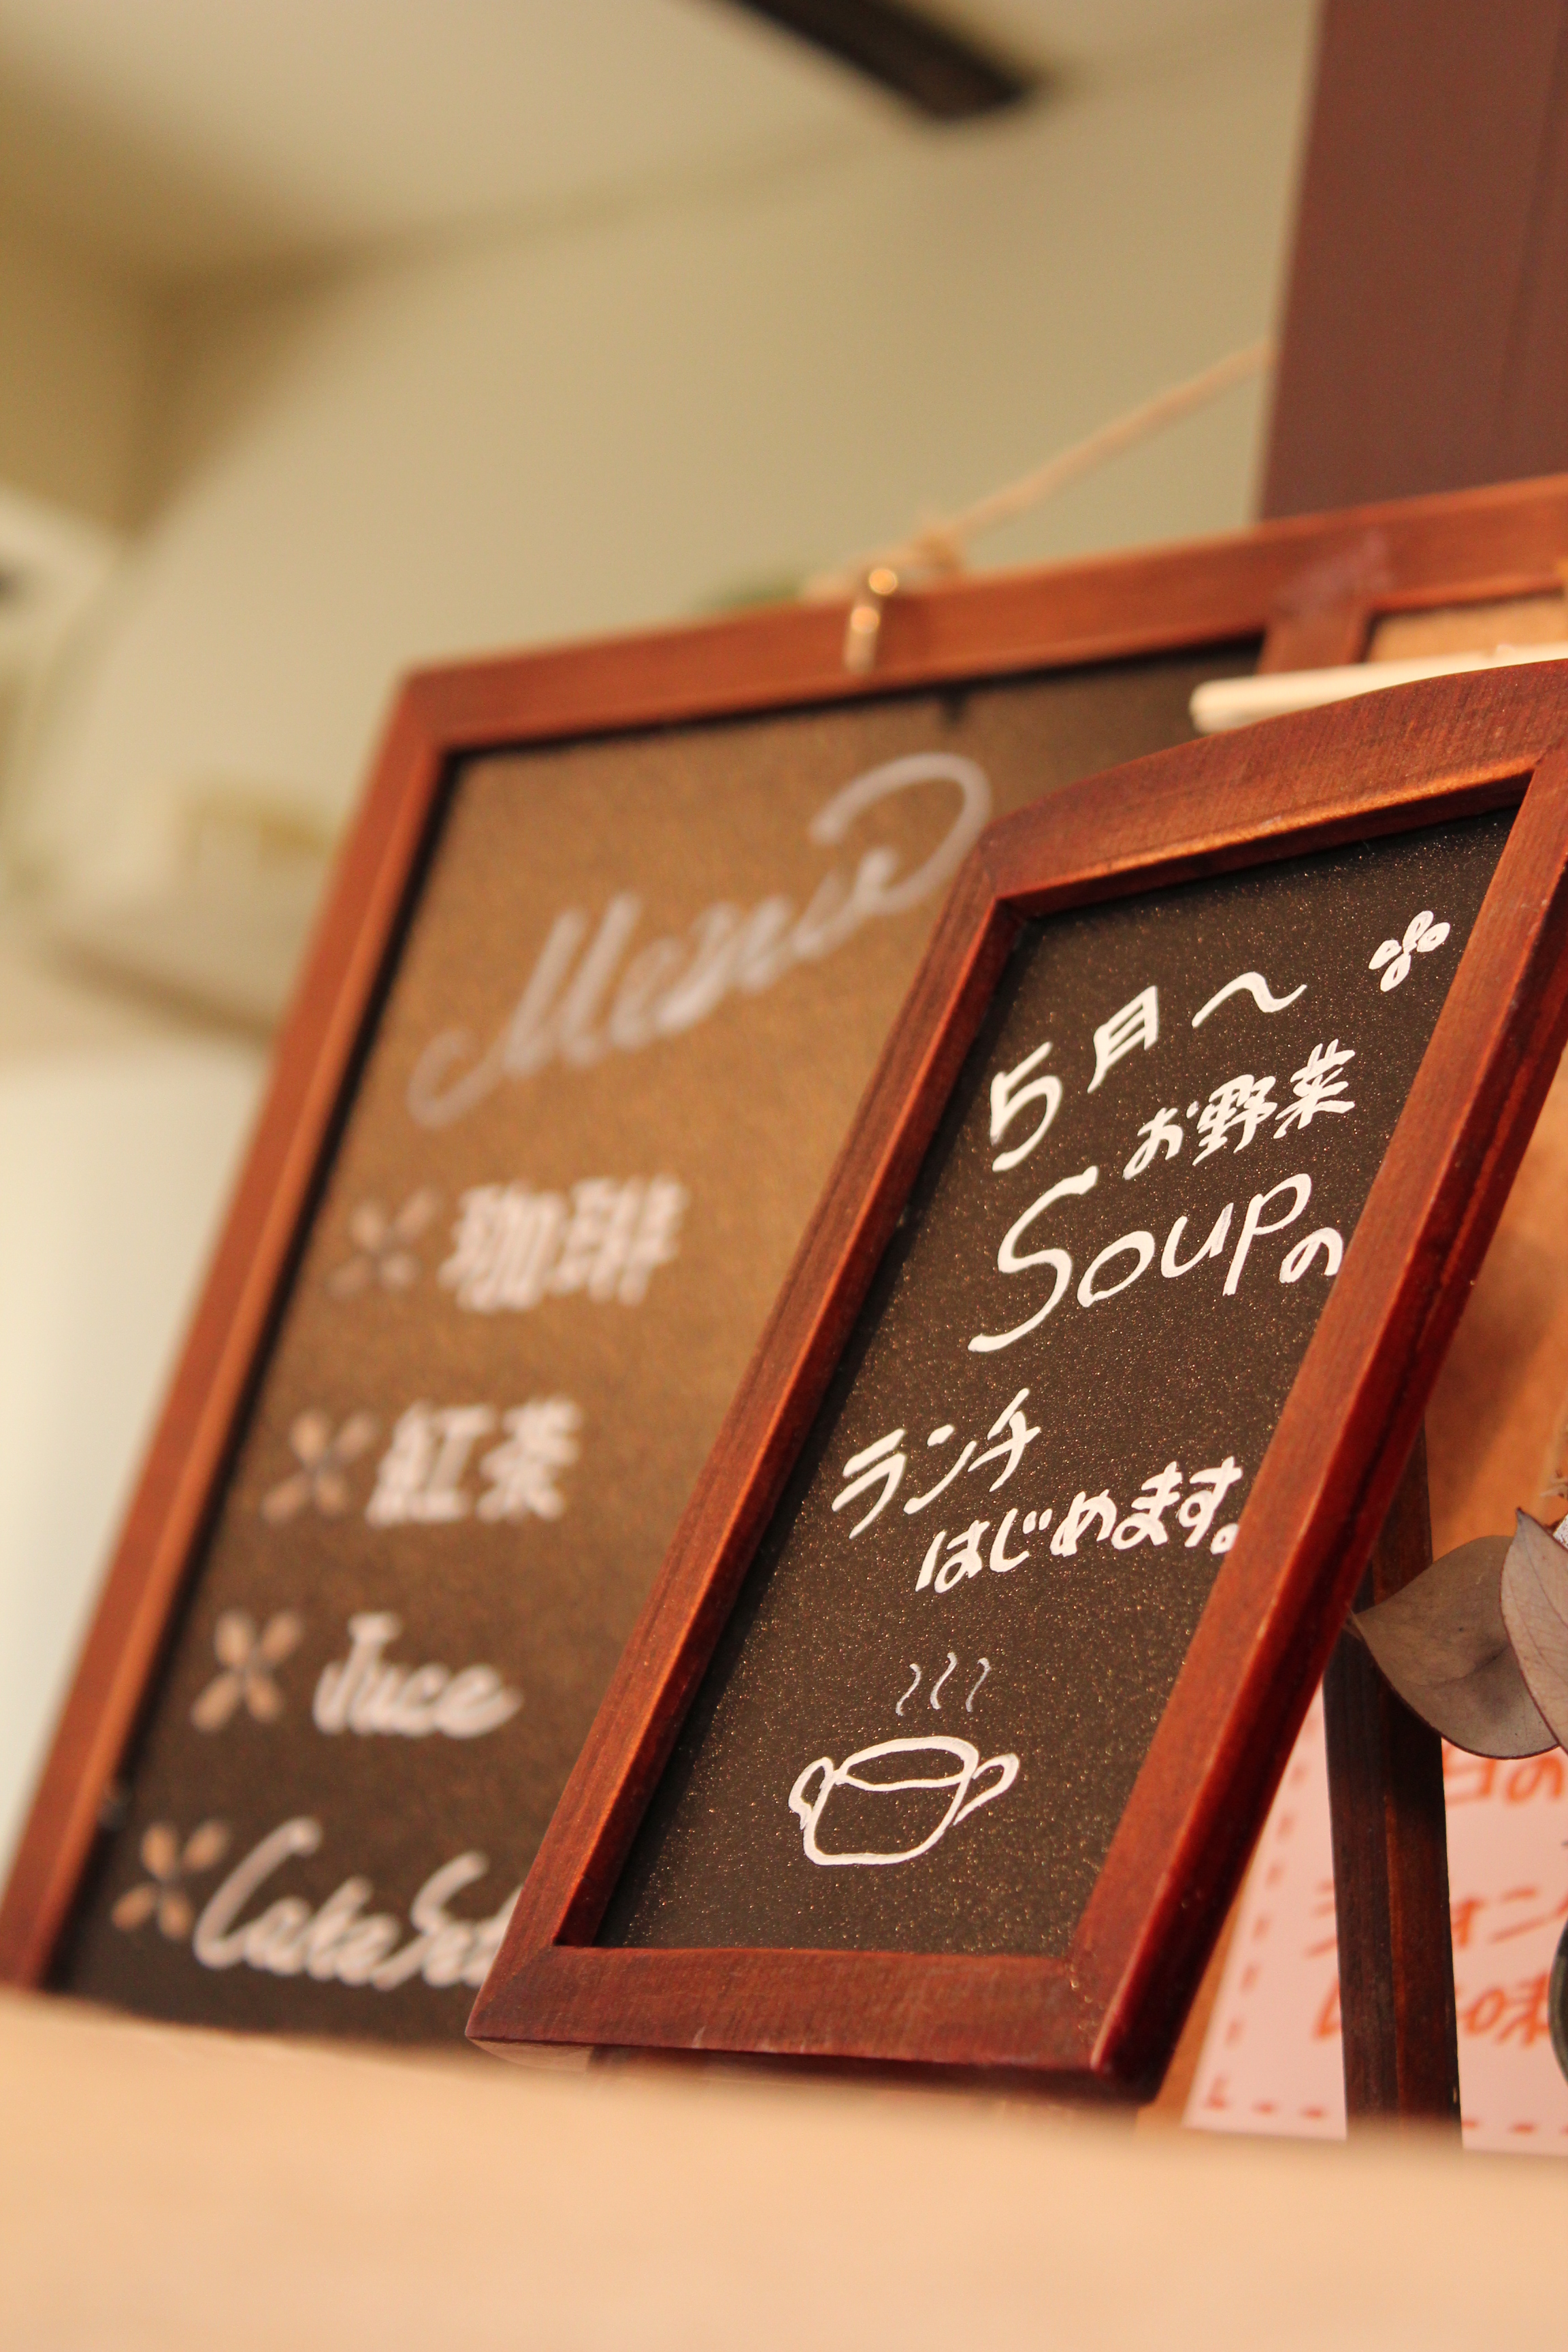 Menu
珈琲
紅茶
Juce
Cake Set
5月〜
お野菜
Soupの
ランチ
はじめます。